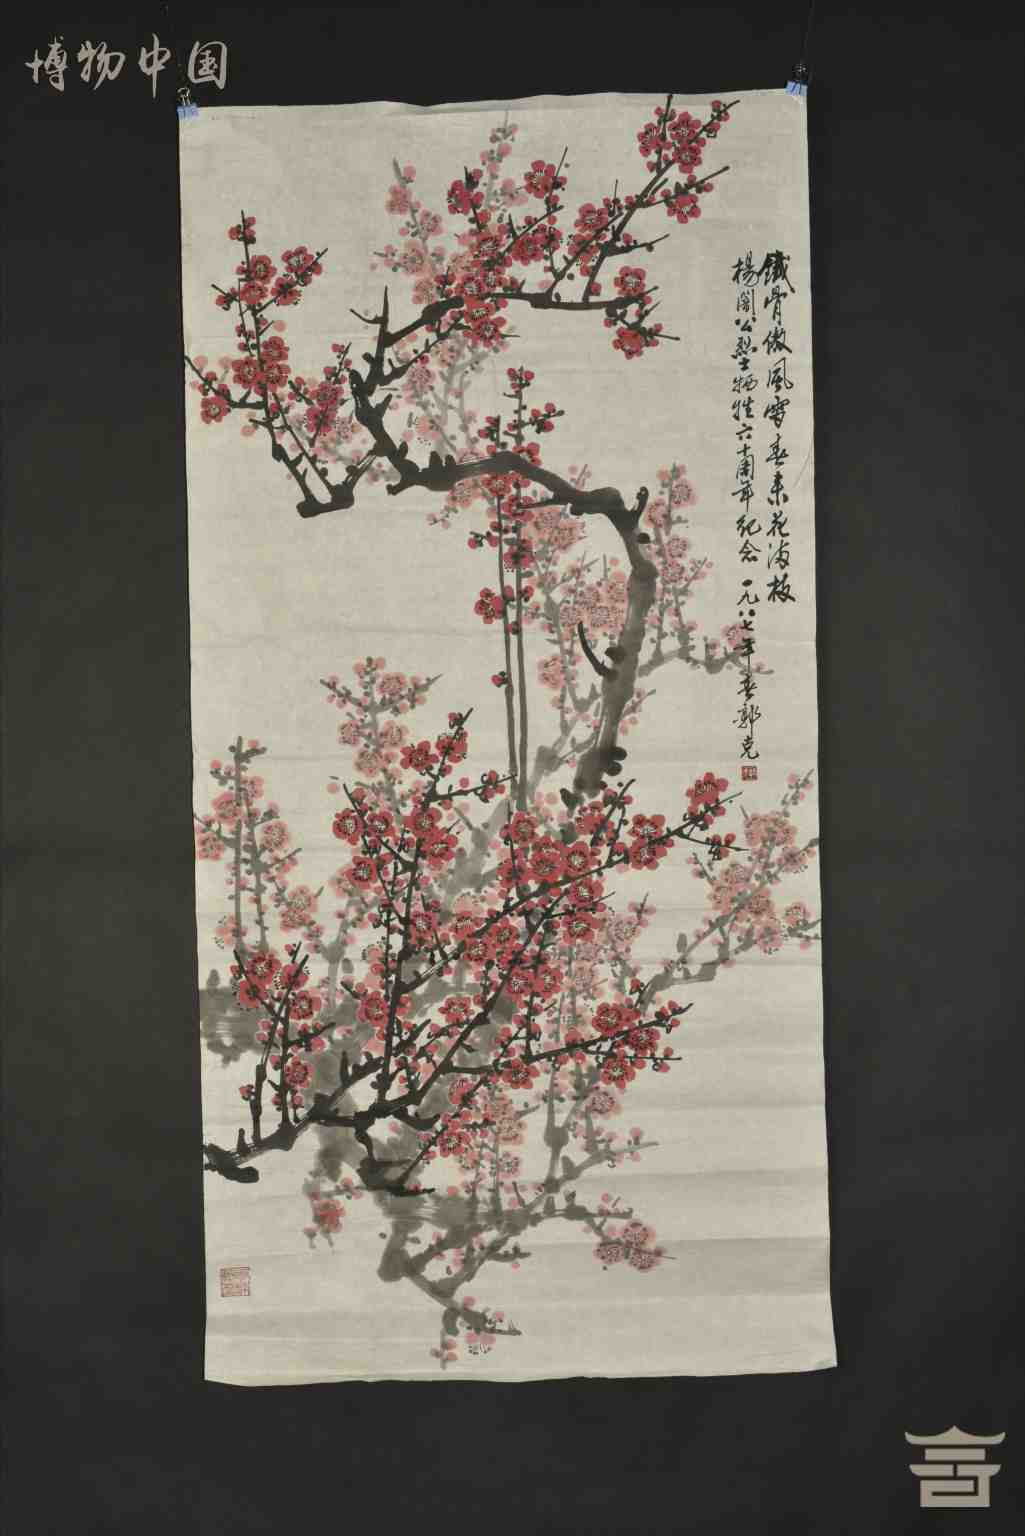 博物中国
鐵骨傲風雪春来花满枝
楊闇公烈士牺牲六十周年纪念 一九八七年春郭克